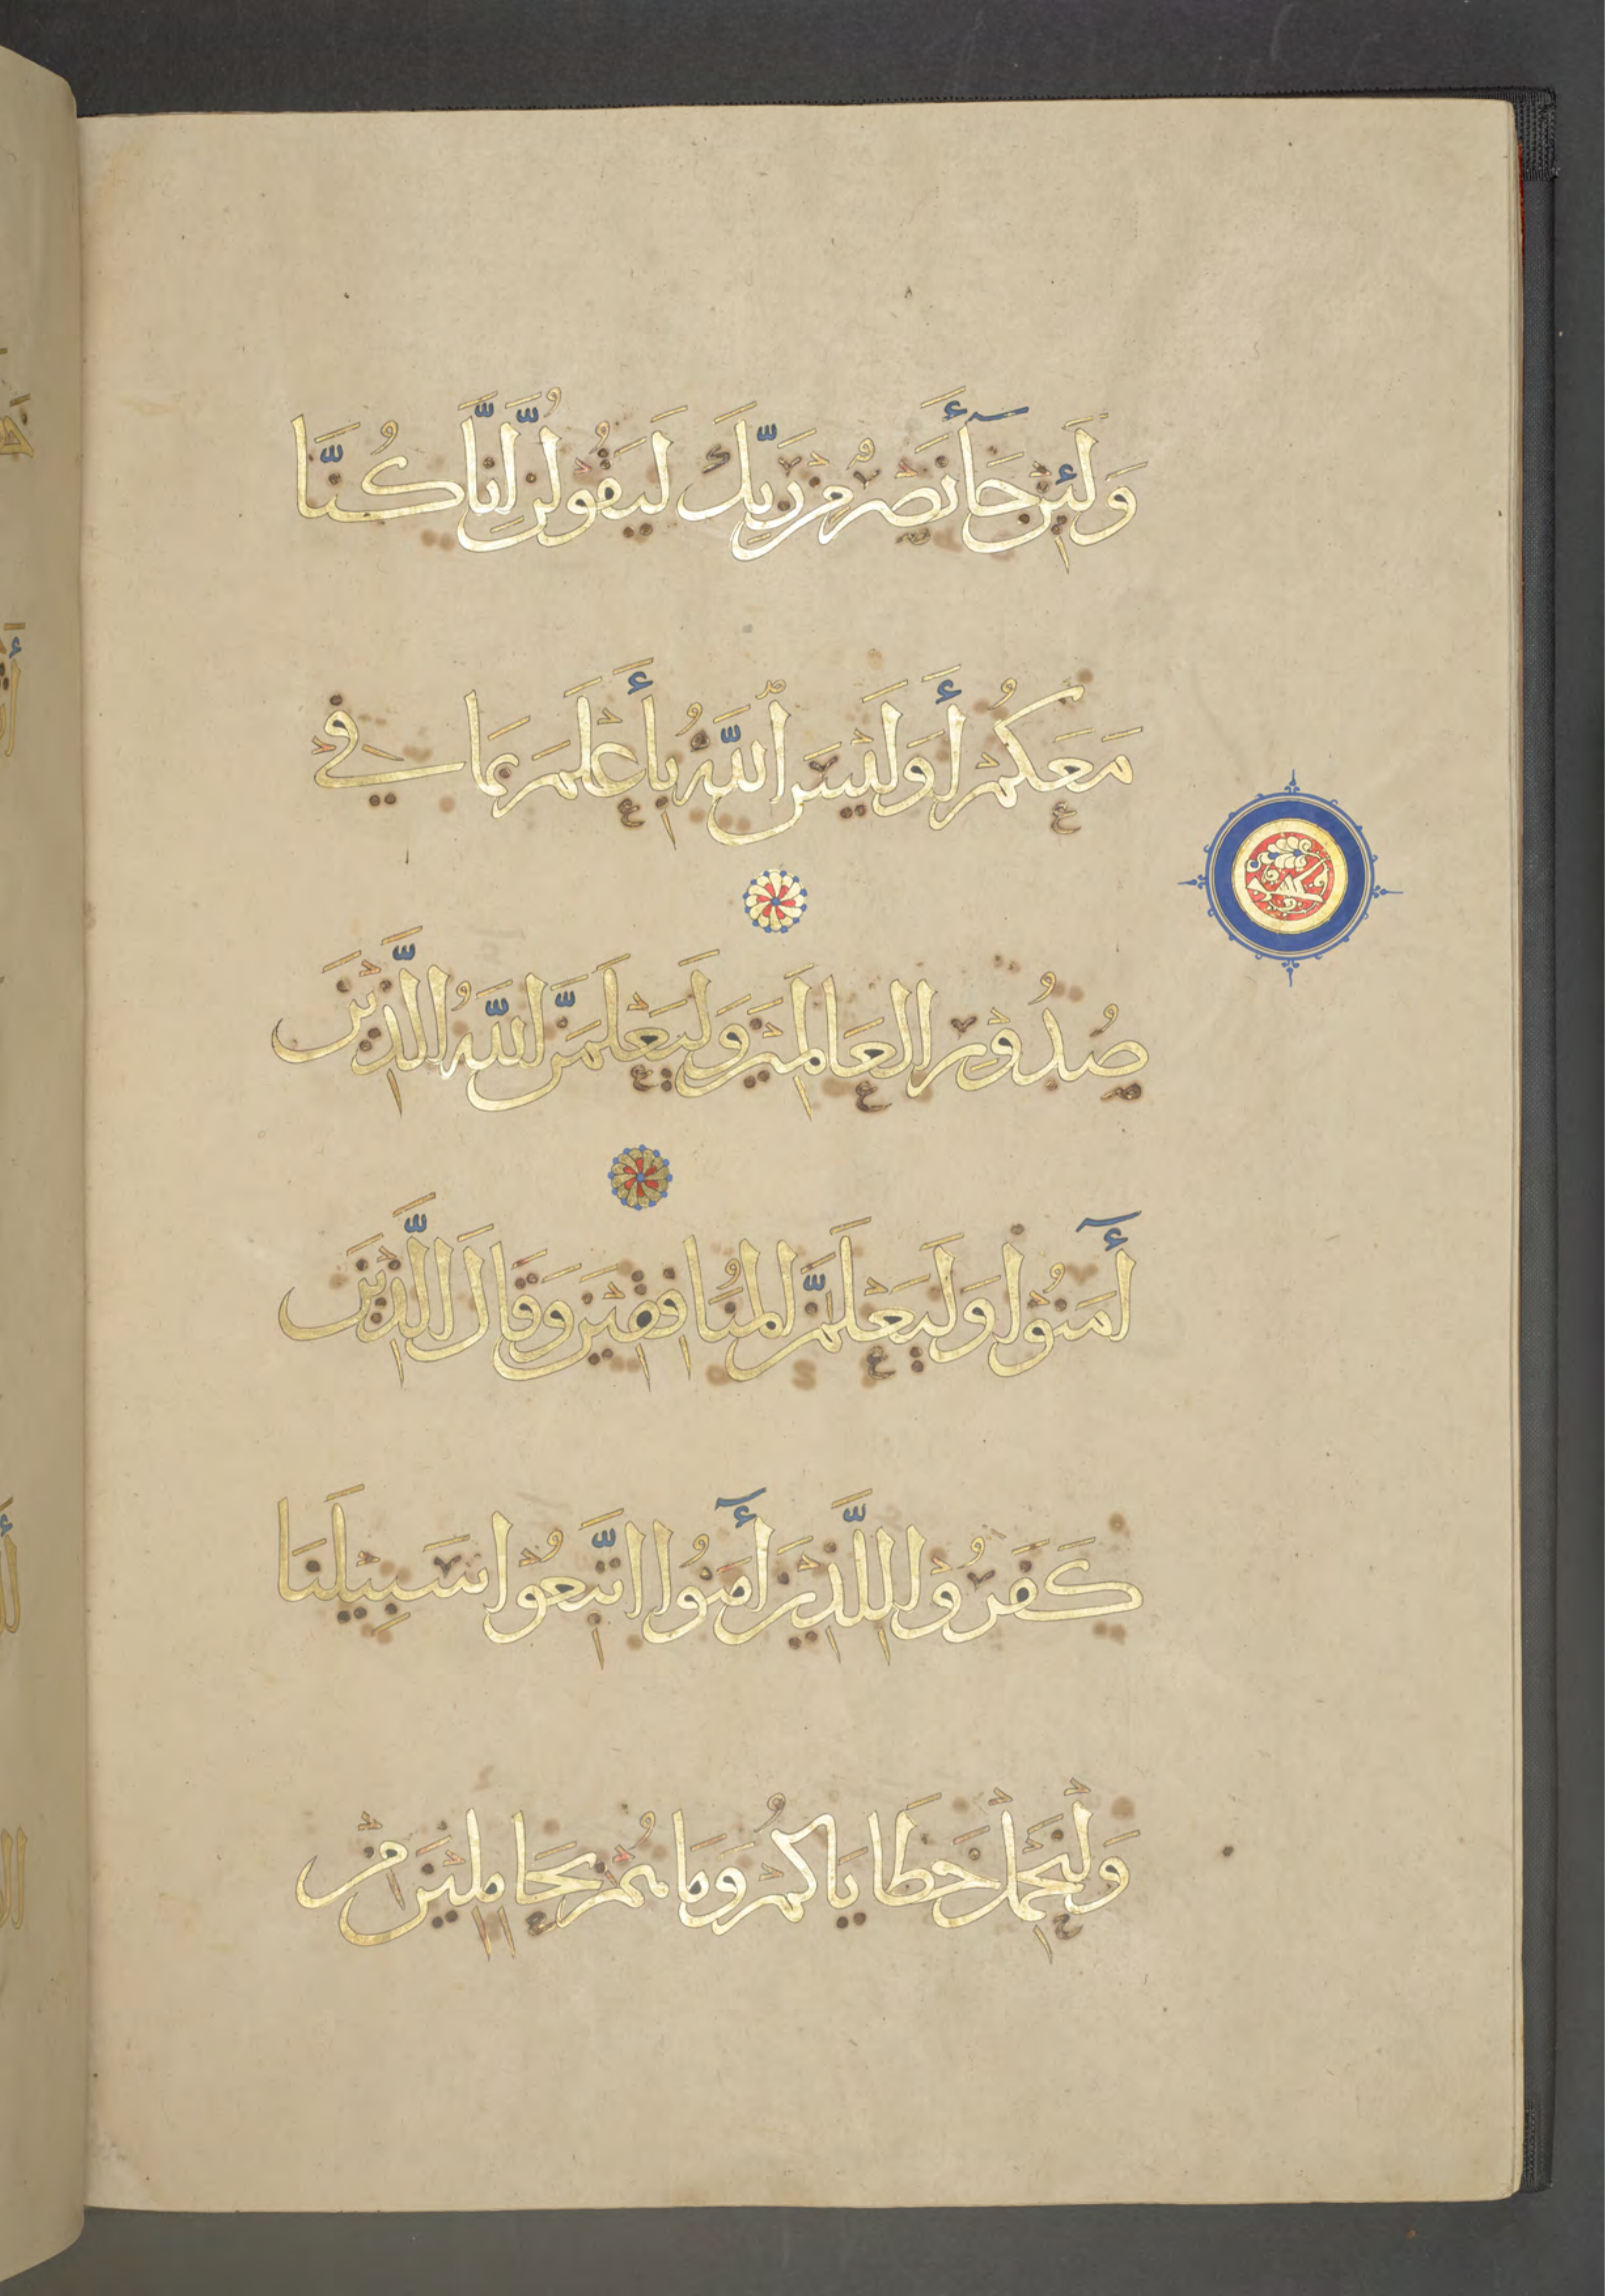 وَلَئِنْ جَآءَ نَصْرٌ مِنْ رَبِّكَ لَيَقُولُنَّ إِنَّا كُنَّا
مَعَكُمْ أَوَلَيْسَ اللَّهُ بِأَعْلَمَ بِمَا فِي
صُدُوْرِ العَالَمِيْنَ وَلَيَعْلَمَنَّ اللَّهُ الَّذِيْنَ
أٓمَنُوْا وَلَيَعْلَمَنَّ المُنَافِقِيْنَ وَقَالَ الَّذِيْنَ
كَفَرُوْا لِلَّذِيْنَ أٓمَنُوا اتَّبِعُوْا سَبِيْلَنَا
وَلْنَحْمِلْ خَطَايَاكُمْ وَمَا هُمْ بِحَامِلِيْنَ مِنْ